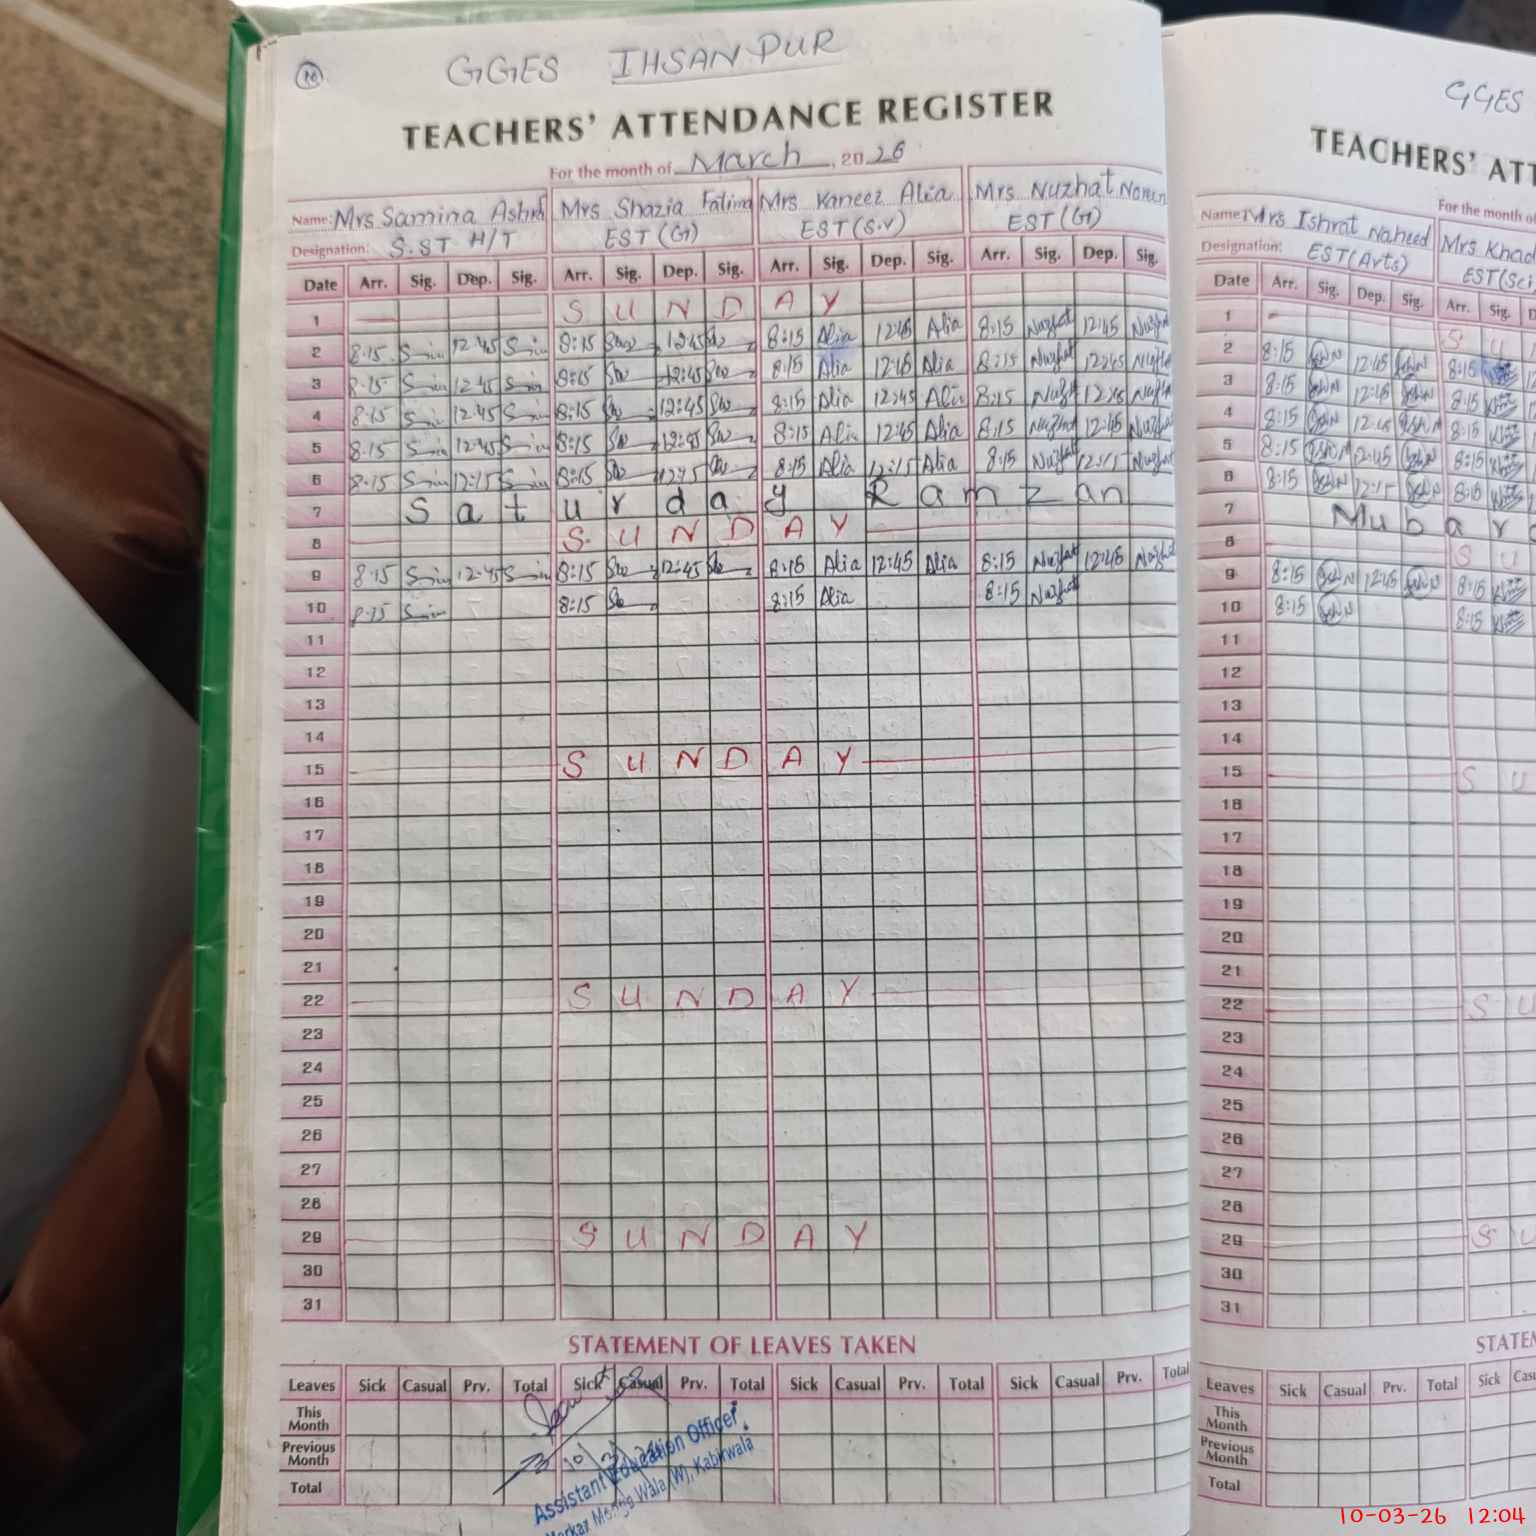 10
GGES IHSANPUR
TEACHERS' ATTENDANCE REGISTER
For the month of March, 2026
Name: Mrs Samina Ashraf Mrs Shazia Fatima Mrs Kaneez Alia Mrs Nuzhat Noreen
Designation: S.ST H/T EST(G) EST(S.V) EST(G)
Date Arr. Sig. Dep. Sig. Arr. Sig. Dep. Sig. Arr. Sig. Dep. Sig. Arr. Sig. Dep. Sig.
1 S U N D A Y
2 8:15 12:45 8:15 12:45 8:15 Alia 12:45 Alia 8:15 Nuzhat 12:45 Nuzhat
3 8:15 12:45 8:15 12:45 8:15 Alia 12:45 Alia 8:15 Nuzhat 12:45 Nuzhat
4 8:15 12:45 8:15 12:45 8:15 Alia 12:45 Alia 8:15 Nuzhat 12:45 Nuzhat
5 8:15 12:45 8:15 12:45 8:15 Alia 12:45 Alia 8:15 Nuzhat 12:45 Nuzhat
6 8:15 12:15 8:15 12:15 8:15 Alia 12:15 Alia 8:15 Nuzhat 12:15 Nuzhat
7 S a t u r d a y R a m z a n
8 S U N D A Y
9 8:15 12:45 8:15 12:45 8:15 Alia 12:45 Alia 8:15 Nuzhat 12:45 Nuzhat
10 8:15 8:15 8:15 Alia 8:15 Nuzhat
11
12
13
14
15 S U N D A Y
16
17
18
19
20
21
22 S U N D A Y
23
24
25
26
27
28
29 S U N D A Y
30
31
STATEMENT OF LEAVES TAKEN
Leaves Sick Casual Prv. Total Sick Casual Prv. Total Sick Casual Prv. Total Sick Casual Prv. Total
This Month
Previous Month
Total
Assistant Education Officer
Markaz Mongi Wala (W), Kabirwala
GGES
TEACHERS' ATT
For the month o
Name: Mrs Ishrat Naheed Mrs Khad
Designation: EST(Arts) EST(Sci
Date Arr. Sig. Dep. Sig. Arr. Sig. D
1 S U
2 8:15 12:45 8:15
3 8:15 12:45 8:15
4 8:15 12:45 8:15
5 8:15 12:45 8:15
6 8:15 12:15 8:15
7 M u b a r
8 S U
9 8:15 12:45 8:15
10 8:15 8:15
11
12
13
14
15 S U
16
17
18
19
20
21
22 S U
23
24
25
26
27
28
29 S U
30
31
STATEM
Leaves Sick Casual Prv. Total Sick Casu
This Month
Previous Month
Total
10-03-26 12:04